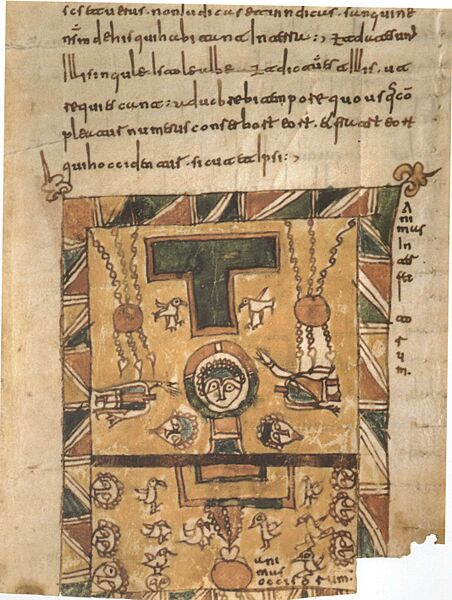 scs et uerus. non iudicas et uindicas. sanguine
nsm de his qui habitant in terra :, Et date sunt
illis singule stole albe. Et dictum est illis. ut
requiescant adhuc brebi tempore quousq; co
pleatur numerus conserborum eorum et fratrum eorum
qui occidentur. sicut et ipsi :,
A
nimas
ani
mas
occisorum.